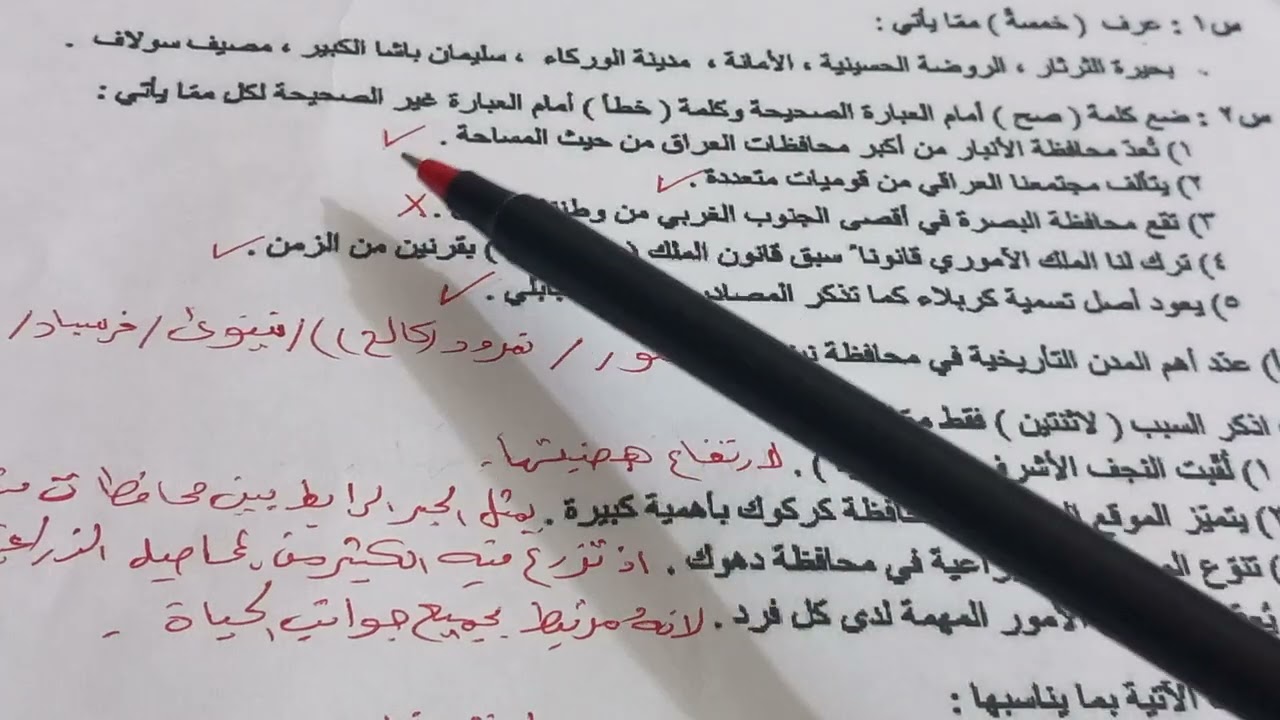 س١ : عرف ( خمسة ) ممّا يأتي :
بحيرة الثرثار ، الروضة الحسينية ، الأمانة ، مدينة الوركاء ، سليمان باشا الكبير ، مصيف سولاف .
س٢ : ضع كلمة ( صح ) أمام العبارة الصحيحة وكلمة ( خطأ ) أمام العبارة غير الصحيحة لكل ممّا يأتي :
١) تُعدّ محافظة الأنبار من أكبر محافظات العراق من حيث المساحة . ✓
٢) يتألف مجتمعنا العراقي من قوميات متعددة . ✓
٣) تقع محافظة البصرة في أقصى الجنوب الغربي من . X
٤) ترك لنا الملك الأموري قانوناً سبق قانون الملك ( ) بقرنين من الزمن . ✓
٥) يعود أصل تسمية كربلاء كما تذكر . ✓
) عدّد أهم المدن التأريخية في محافظة / نمرود (كالح)) / نينوى / خرسباد /
اذكر السبب ( لاثنتين ) فقط
١) لُقّبت النجف ) . لارتفاع هضبتها .
) يتميّز الموقع كركوك بأهمية كبيرة . يمثل الجسر الرابط بين محافظات
) تنوّع في محافظة دهوك . اذ تزرع فيه الكثير من المحاصيل
الأمور المهمة لدى كل فرد . لانه مرتبط بجميع جوانب الحياة .
الآتية بما يناسبها :